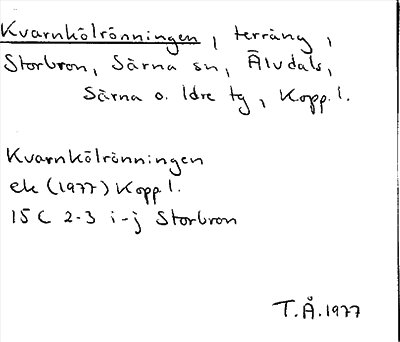 Kvarnkölrönningen, terräng,
Storbron, Särna sn, Älvdals,
Särna o. Idre tg, Kopp.l.
Kvarnkölrönningen
ek (1977) Kopp l.
15 C 2-3 i-j Storbron
T.Å.1977